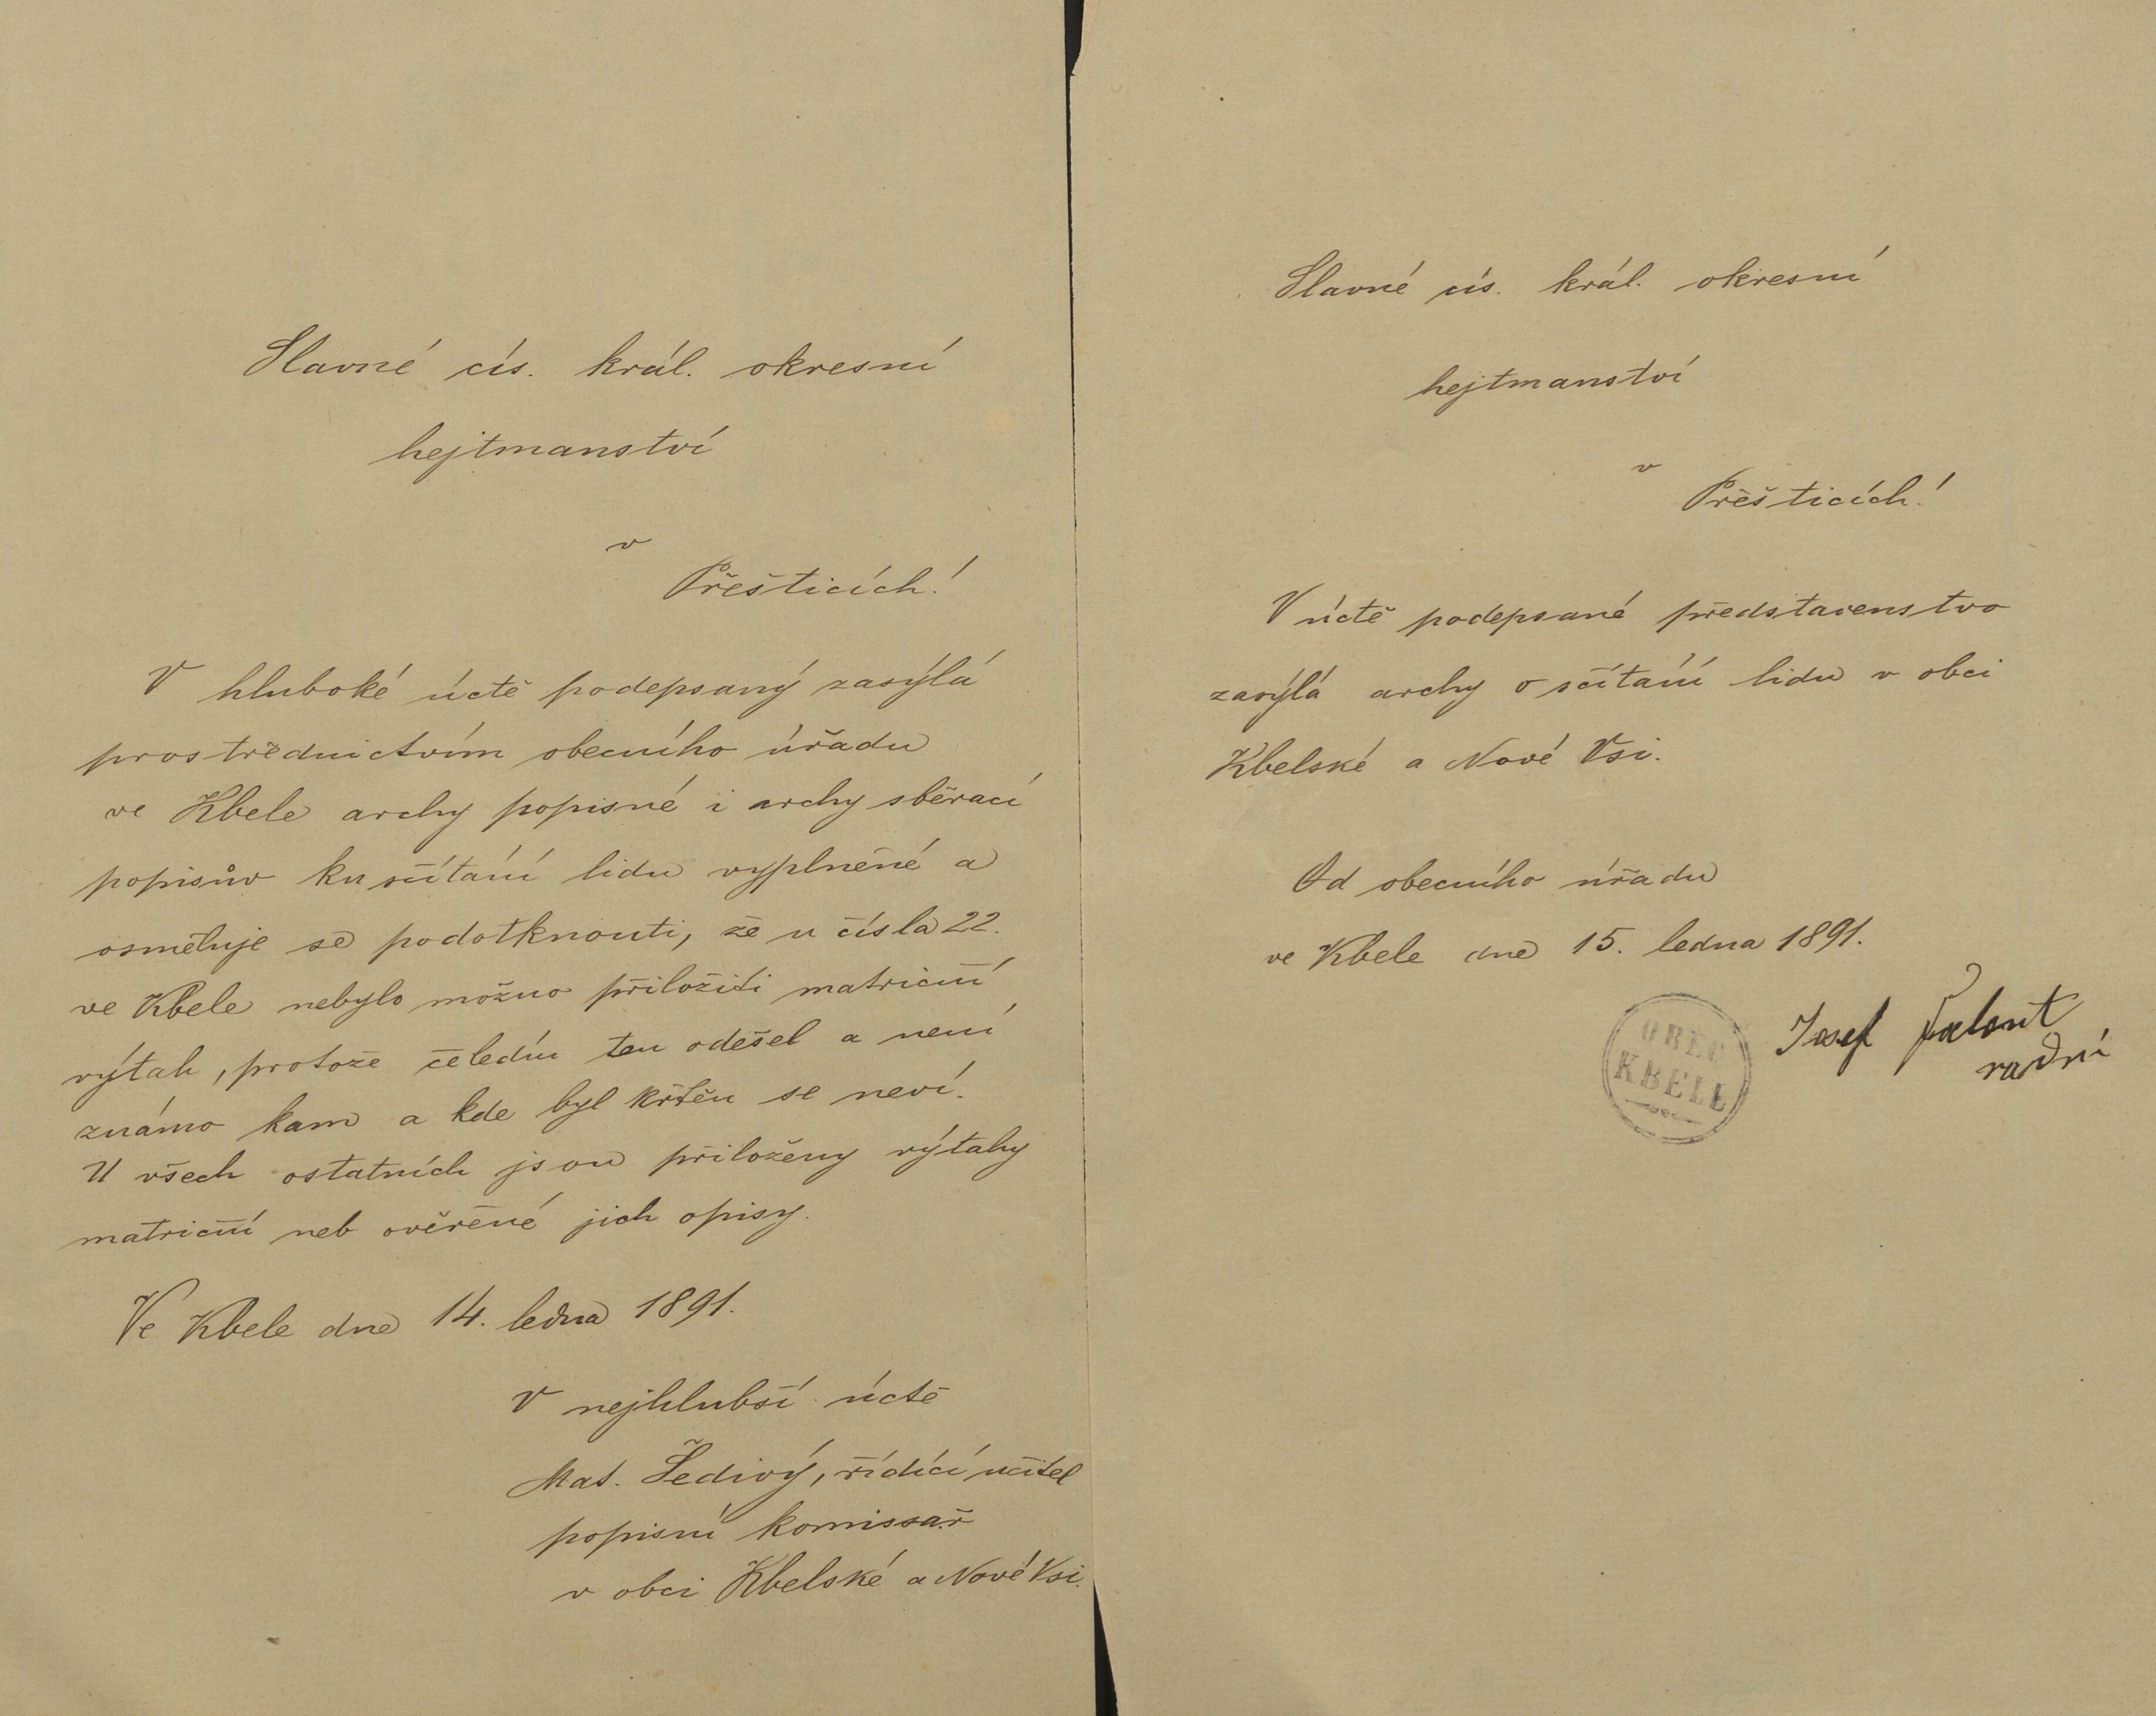 Slavné cís. král. okresní
hejtmanství
v
Přešticích!
V hluboké úctě podepsaný zasýlá
prostřednictvím obecního úřadu
ve Kbele archy popisné i archy sběrací
popisův ku sčítání lidu vyplněné a
osměluje se podotknouti, že u čísla 22.
ve Kbele nebylo možno přiložiti matriční
výtah, protože čeledín ten odešel a není
známo kam a kde byl křtěn se neví.
U všech ostatních jsou přiloženy výtahy
matriční neb ověřené jich opisy.
Ve Kbele dne 14. ledna 1891.
V nejhlubší úctě
Mat. Šedivý, řídící učitel
popisní komissař
v obci Kbelské a Nové Vsi.
Slavné cís. král. okresní
hejtmanství
v
Přešticích!
V úctě podepsané představenstvo
zasýlá archy o sčítání lidu v obci
Kbelské a Nové Vsi.
Od obecního úřadu
ve Kbele dne 15. ledna 1891.
OBEC
KBELE
Josef
radní